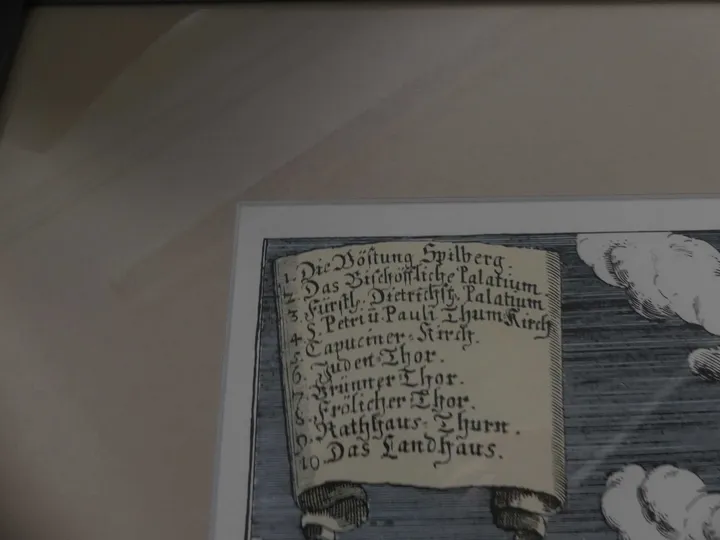 1. Die Vöstung Spilberg.
2. Das Bischöffliche Palatium.
3. Fürstl. Dietrichst. Palatium.
4. S. Petri ü. Pauli Thum Kirch
5. Capuciner-Kirch.
6. Juden-Thor.
7. Brünner Thor.
8. Frölicher Thor.
9. Rathhaus-Thurn.
10. Das Landhaus.